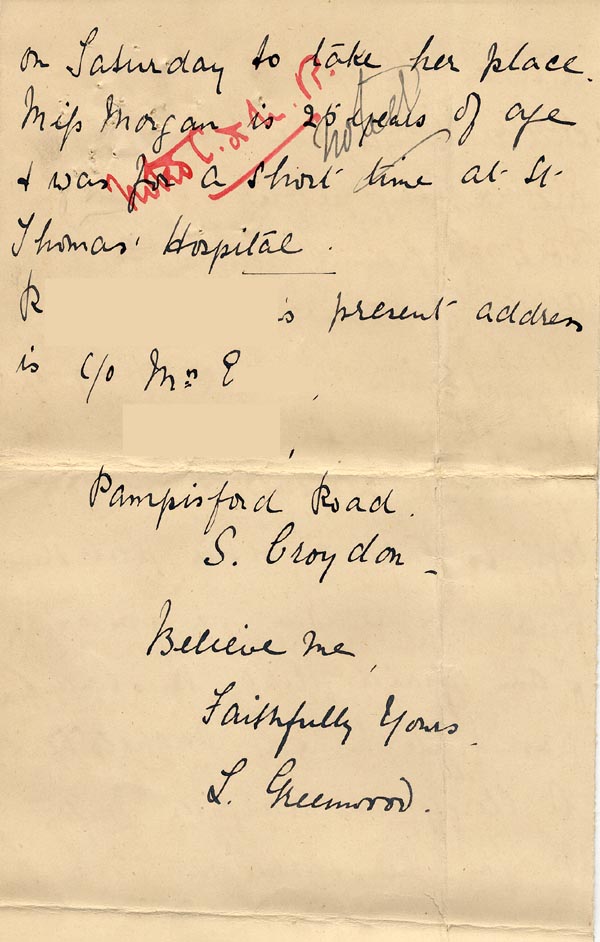 on Saturday to take her place.
Miss Morgan is 25 years of age
& was for a short time at St
Thomas' Hospital.
R s present address
is c/o Mrs E
,
,
Pampisford Road.
S. Croydon _
Believe me,
Faithfully Yours.
L. Greenwood.
Noted